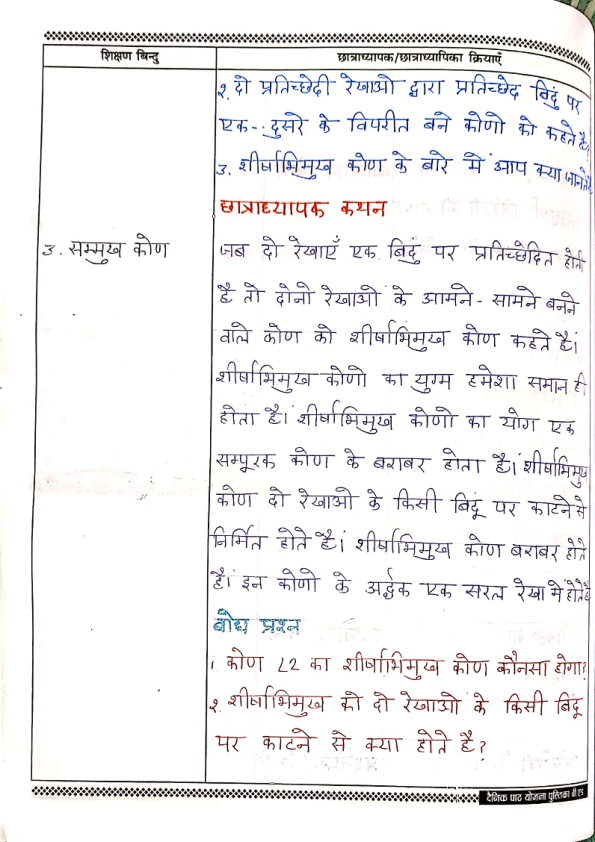 शिक्षण बिन्दु
छात्राध्यापक/छात्राध्यापिका क्रियाएँ
२. दो प्रतिच्छेदी रेखाओ द्वारा प्रतिच्छेद बिंदु पर
एक-दुसरे के विपरीत बने कोणो को कहते है?
३. शीर्षाभिमुख कोण के बारे में आप क्या जानते है
छात्राध्यापक कथन
३. सम्मुख कोण
जब दो रेखाएँ एक बिंदु पर प्रतिच्छेदित होती
है तो दोनो रेखाओ के आमने-सामने बनने
वाले कोण को शीर्षाभिमुख कोण कहते है।
शीर्षाभिमुख कोणो का युग्म हमेशा समान ही
होता है। शीर्षाभिमुख कोणो का योग एक
सम्पूरक कोण के बराबर होता है। शीर्षाभिमुख
कोण दो रेखाओ के किसी बिंदू पर काटने से
निर्मित होते है। शीर्षाभिमुख कोण बराबर होते
है। इन कोणो के अर्द्धक एक सरल रेखा मे होते है
बोध प्रश्न
१. कोण ∠2 का शीर्षाभिमुख कोण कौनसा होगा?
२. शीर्षाभिमुख को दो रेखाओ के किसी बिंदू
पर काटने से क्या होते है?
दैनिक पाठ योजना पुस्तिका बी एड